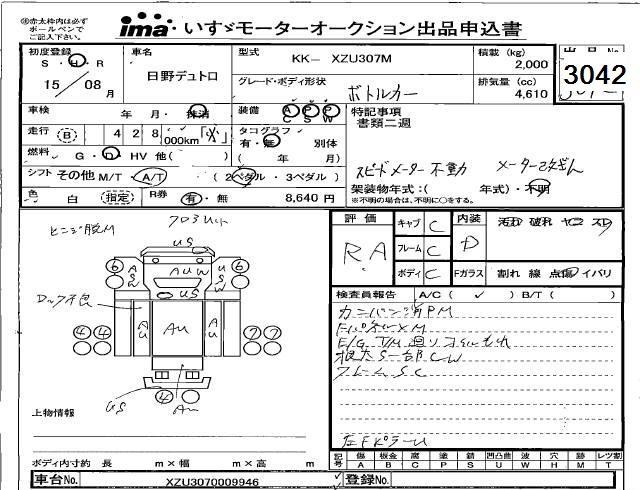 ㊟赤太枠内は必ず
ボールペンで
ご記入下さい。
ima いすゞモーターオークション出品申込書
初度登録
S・H・R
15 / 08 月
車名
日野デュトロ
型式 KK- XZU307M
グレード・ボディ形状
ボトルカー
積載 (kg)
2,000
排気量 (cc)
4,610
出品No.
3042
車検 年 月・抹消
装備 A P P
C S W
特記事項
書類二週
走行 B 4 2 8 ,000km
タコグラフ
有・無 別体
( 年 月)
燃料 G・D・HV 他( )
スピードメーター不動
シフト その他 M/T・A/T (2ペダル・3ペダル)
架装物年式:( 年式)・不明
※不明の場合は、不明に○をする。
色 白 (指定) R券 有・無 8,640 円
評価
RA
キャブ C
フレーム C
ボディ C
内装 D
Fガラス 割れ 線 点傷 イバリ
検査員報告 A/C ( ✓ ) B/T ( )
US
6 6
A S W
AUW
U S W
US
AU AU AU
4 4 7 7
US 4 AU
E/G T/M 廻りオイルもれ
フレームSC
上物情報
ボディ内寸約 長 m×幅 m×高 m
記号 傷 板金 腐 塗 錆 凹凸曲 波 穴 跡 レツ割
A B C P S U W H M T
車台No. XZU3070009946 登録No.